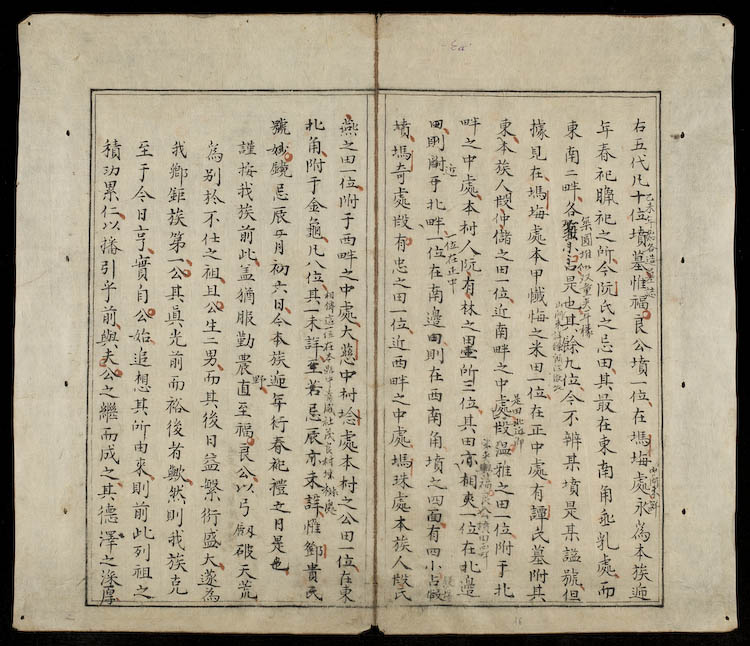 右五代凡十位墳墓惟福良公墳一位在塢塰處永為本族迎
年春祀臘祀之所今阮氏之忌田其最在東南角垂乳處而
東南二畔各是也其餘九位今不辨某墳是某謚號但
據見在塢塰處本甲懺悔之米田一位在正中處有譚氏墓附其
東本族人段仲儲之田一位近南畔之中處段溫雅之田一位附于北
畔之中處本村人阮有林之田壹所三位其田亦相夾一位在北邊
一位在正中
田則附近于北畔一位在南邊田則在西南角墳之四面有四小占段
墳塢奇處段有忠之田一位近西畔之中處塢珠處本族人段氏
燕之田一位附于西畔之中處大中村埝處本村之公田一位在東
北角附于金龜凡八位其一未詳至若忌辰亦未詳惟鄧貴氏
號妙鏡忌辰四月初六日今本族迎年行春祀禮之日是也
謹按我族前此盖猶服勤農野直至福良公以弓劍破天荒
為別於不仕之祖且公生二男而其後日益繁衍盛大遂為
我鄉鉅族第一公其真光前而裕後者歟然則我族克
至于今日亨實自公始追想其所由來則前此列祖之
積功累仁以播引乎前與夫公之繼而成之其德澤之深厚